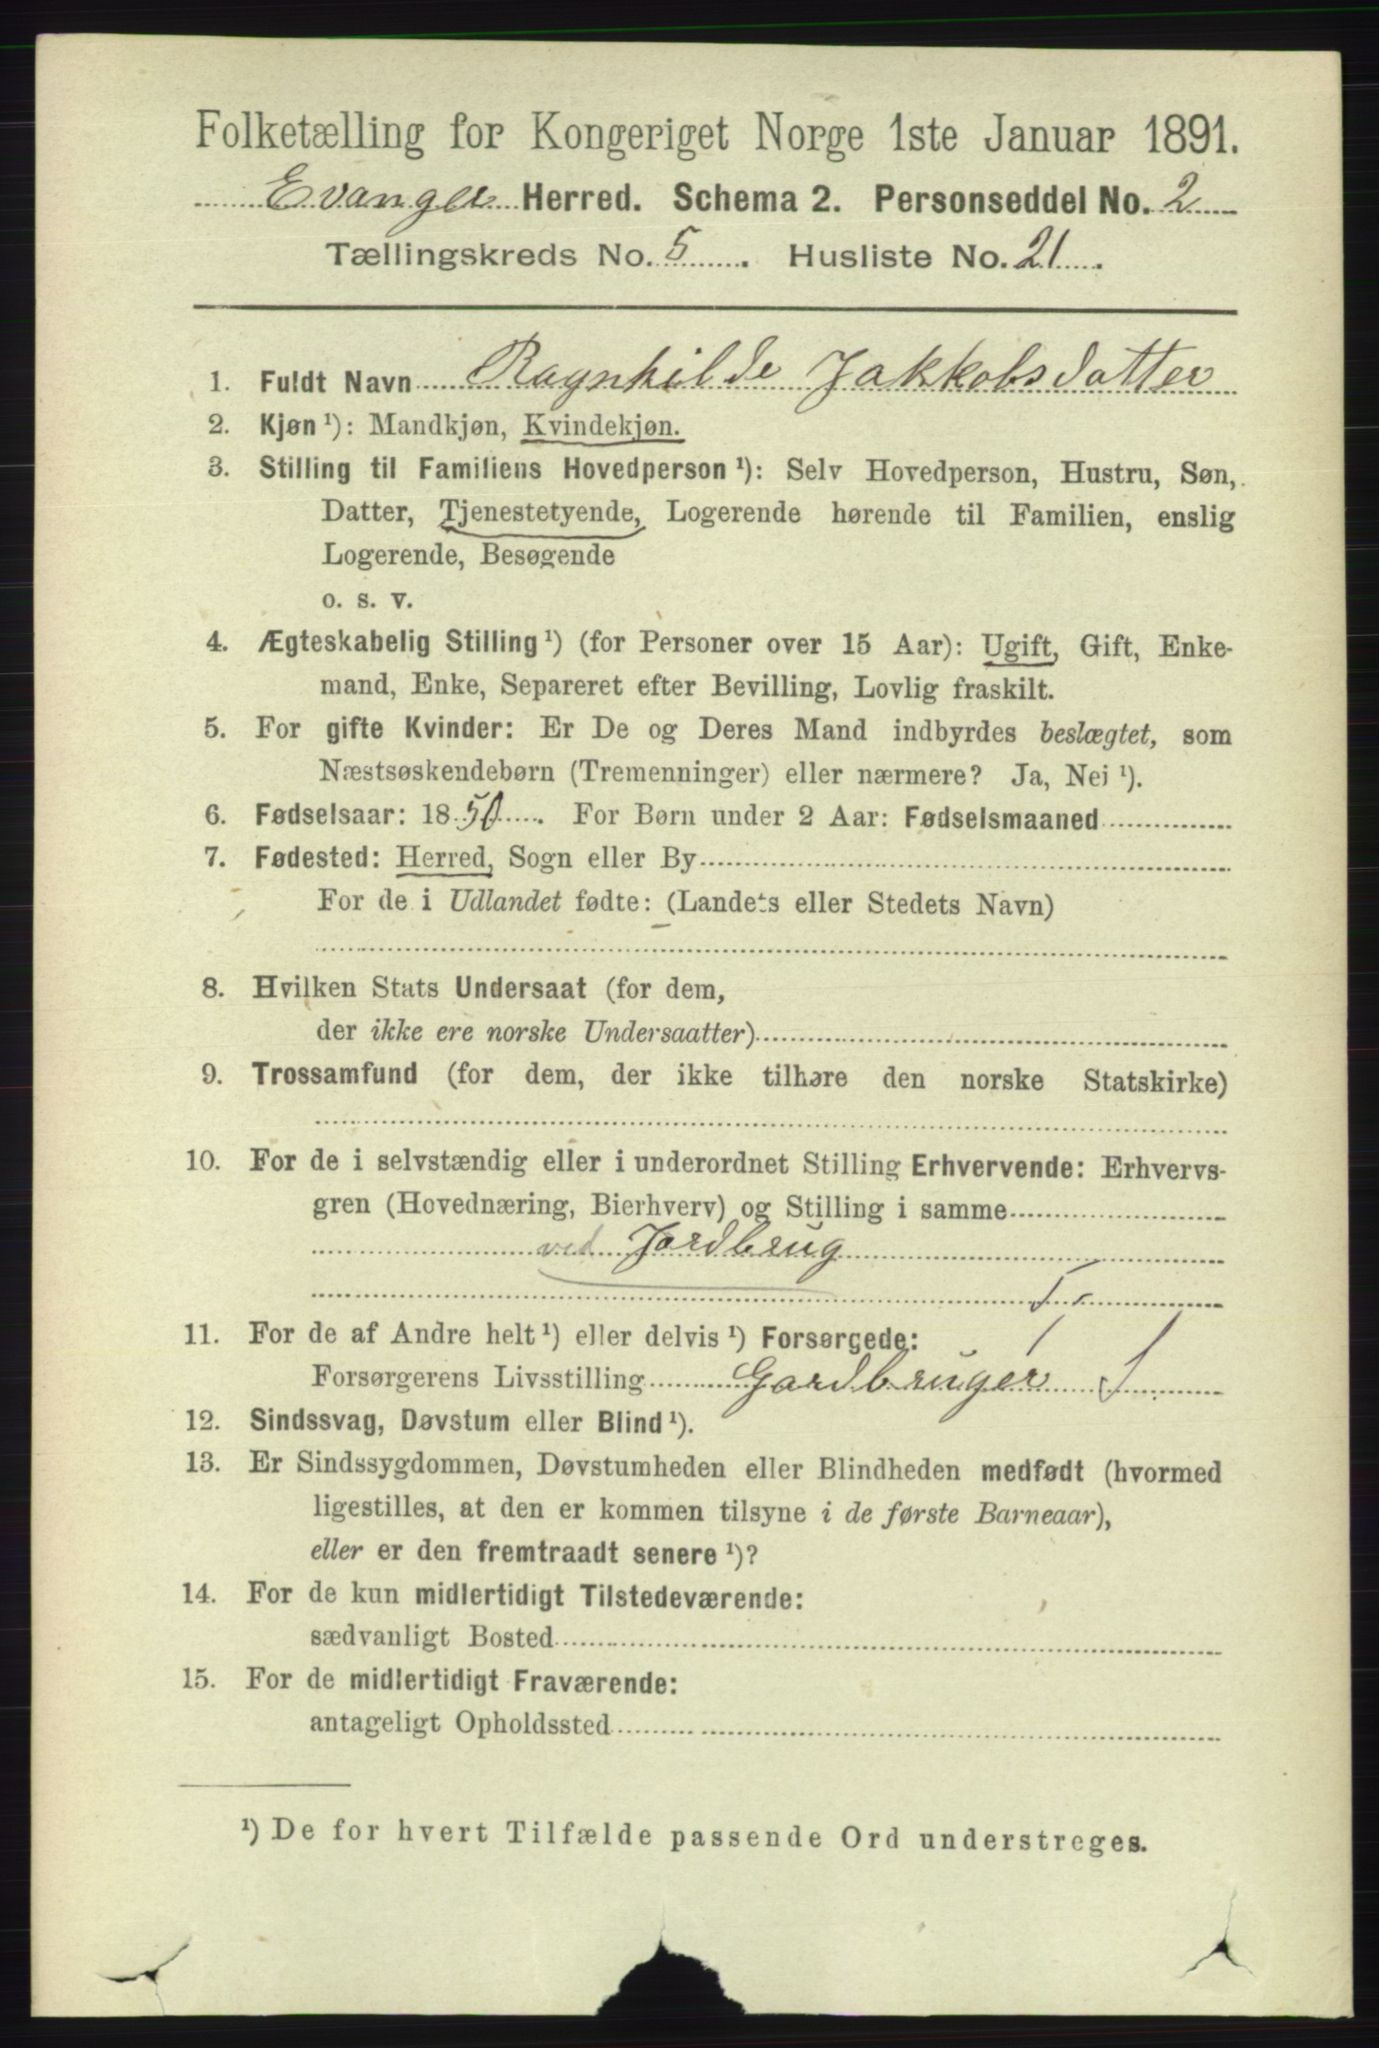 Folketælling for Kongeriget Norge 1ste Januar 1891.
Evanger Herred. Schema 2. Personseddel No. 2
Tællingskreds No. 5. Husliste No. 21.
1. Fuldt Navn Ragnhilde Jakkobsdatter
2. Kjøn ¹): Mandkjøn, Kvindekjøn.
3. Stilling til Familiens Hovedperson ¹): Selv Hovedperson, Hustru, Søn,
Datter, Tjenestetyende, Logerende hørende til Familien, enslig
Logerende, Besøgende
o. s. v.
4. Ægteskabelig Stilling ¹) (for Personer over 15 Aar): Ugift, Gift, Enke-
mand, Enke, Separeret efter Bevilling, Lovlig fraskilt.
5. For gifte Kvinder: Er De og Deres Mand indbyrdes beslægtet, som
Næstsøskendebørn (Tremenninger) eller nærmere? Ja, Nei ¹).
6. Fødselsaar: 1850. For Børn under 2 Aar: Fødselsmaaned
7. Fødested: Herred, Sogn eller By
For de i Udlandet fødte: (Landets eller Stedets Navn)
8. Hvilken Stats Undersaat (for dem,
der ikke ere norske Undersaatter)
9. Trossamfund (for dem, der ikke tilhøre den norske Statskirke)
10. For de i selvstændig eller i underordnet Stilling Erhvervende: Erhvervs-
gren (Hovednæring, Bierhverv) og Stilling i samme
ved Jordbrug
11. For de af Andre helt ¹) eller delvis ¹) Forsørgede:
Forsørgerens Livsstilling Gardbruger
12. Sindssvag, Døvstum eller Blind ¹).
13. Er Sindssygdommen, Døvstumheden eller Blindheden medfødt (hvormed
ligestilles, at den er kommen tilsyne i de første Barneaar),
eller er den fremtraadt senere ¹)?
14. For de kun midlertidigt Tilstedeværende:
sædvanligt Bosted
15. For de midlertidigt Fraværende:
antageligt Opholdssted
¹) De for hvert Tilfælde passende Ord understreges.